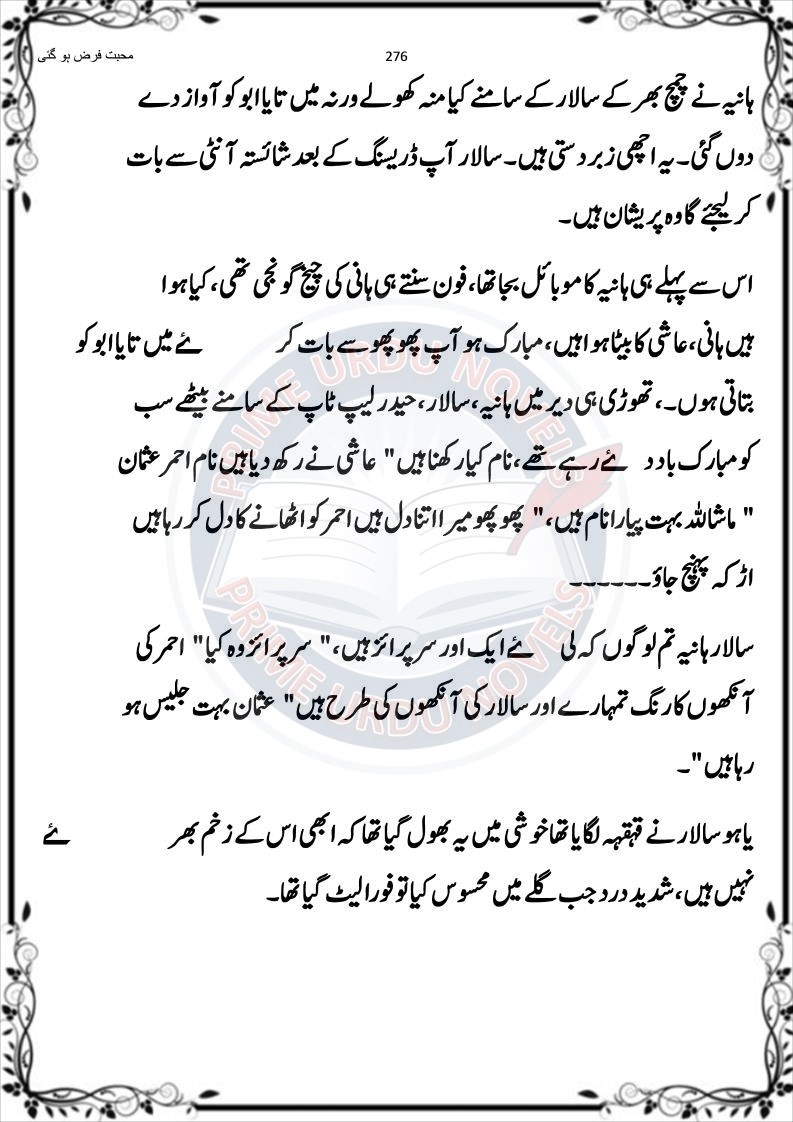 محبت فرض ہو گئی
276
ہانیہ نے چمچ بھر کے سالار کے سامنے کیا منہ کھولے ورنہ میں تایا ابو کو آواز دے
دوں گئی۔ یہ اچھی زبردستی ہیں۔ سالار آپ ڈریسنگ کے بعد شائستہ آنٹی سے بات
کر لیجئے گا وہ پریشان ہیں۔
اس سے پہلے ہی ہانیہ کا موبائل بجا تھا، فون سنتے ہی ہانی کی چیخ گونجی تھی، کیا ہوا
ہیں ہانی، عاشی کا بیٹا ہوا ہیں، مبارک ہو آپ پھوپھو سے بات کر ئے میں تایا ابو کو
بتاتی ہوں۔، تھوڑی ہی دیر میں ہانیہ، سالار، حیدر لیپ ٹاپ کے سامنے بیٹھے سب
کو مبارک باد د ئے رہے تھے، نام کیا رکھنا ہیں" عاشی نے رکھ دیا ہیں نام احمر عثمان
" ماشاللہ بہت پیارا نام ہیں،" پھوپھو میرا اتنا دل ہیں احمر کو اٹھانے کا دل کر رہا ہیں
اڑ کہ پہنچ جاؤ۔۔۔۔۔۔
سالار ہانیہ تم لوگوں کہ لی ئے ایک اور سرپرائز ہیں،" سرپرائز وہ کیا" احمر کی
آنکھوں کا رنگ تمہارے اور سالار کی آنکھوں کی طرح ہیں" عثمان بہت جلیس ہو
رہا ہیں"۔
یاہو سالار نے قہقہہ لگایا تھا خوشی میں یہ بھول گیا تھا کہ ابھی اس کے زخم بھر ئے
نہیں ہیں، شدید درد جب گلے میں محسوس کیا تو فورا لیٹ گیا تھا۔
PRIME URDU NOVELS
PRIME URDU NOVELS